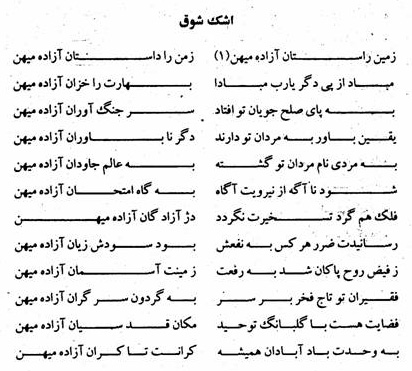 اشک شوق
زمین راستان آزاده میهن(۱) زمن را داستان آزاده میهن
مباد از پی دگر یارب مبادا بهارت را خزان آزاده میهن
به پای صلح جویان تو افتاد سر جنگ آوران آزاده میهن
یقین باور به مردان تو دارند دگر نا باوران آزاده میهن
به مردی نام مردان تو گشته به عالم جاودان آزاده میهن
شود نا آگه از نیرویت آگاه به گاه امتحان آزاده میهن
فلک هم گرد تسخیرت نگردد دژ آزاد گان آزاده میهن
رسانیدت ضرر هر کس به نفعش بود سودش زیان آزاده میهن
ز فیض روح پاکان شد به رفعت ز مینت آسمان آزاده میهن
فقیران تو تاج فخر بر سر به گردون سر گران آزاده میهن
فضایت هست با گلبانگ توحید مکان قدسیان آزاده میهن
به وحدت باد آبادان همیشه کرانت تا کران آزاده میهن